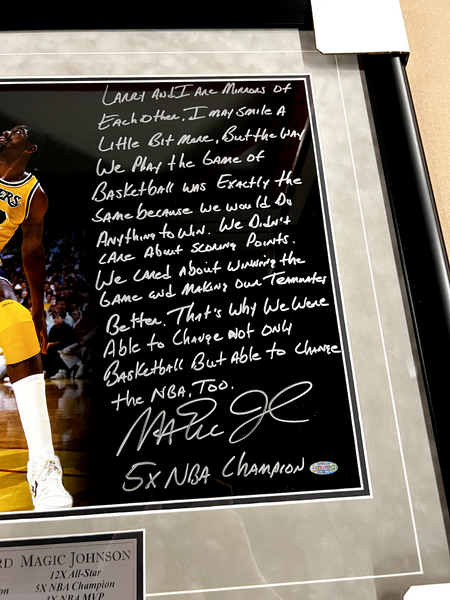 Larry and I Are Mirrors of
Each other. I may smile A
Little Bit More, But the Way
We Play the Game of
Basketball was Exactly the
Same because We would Do
Anything to Win. We Didn't
care About scoring Points.
We cared About winning the
Game and Making our Teammates
Better. That's Why We Were
Able to Change not only
Basketball But Able to Change
the NBA, Too.
Magic J
5x NBA Champion
ERS
RD MAGIC JOHNSON
12X All-Star
5X NBA Champion
3X NBA MVP